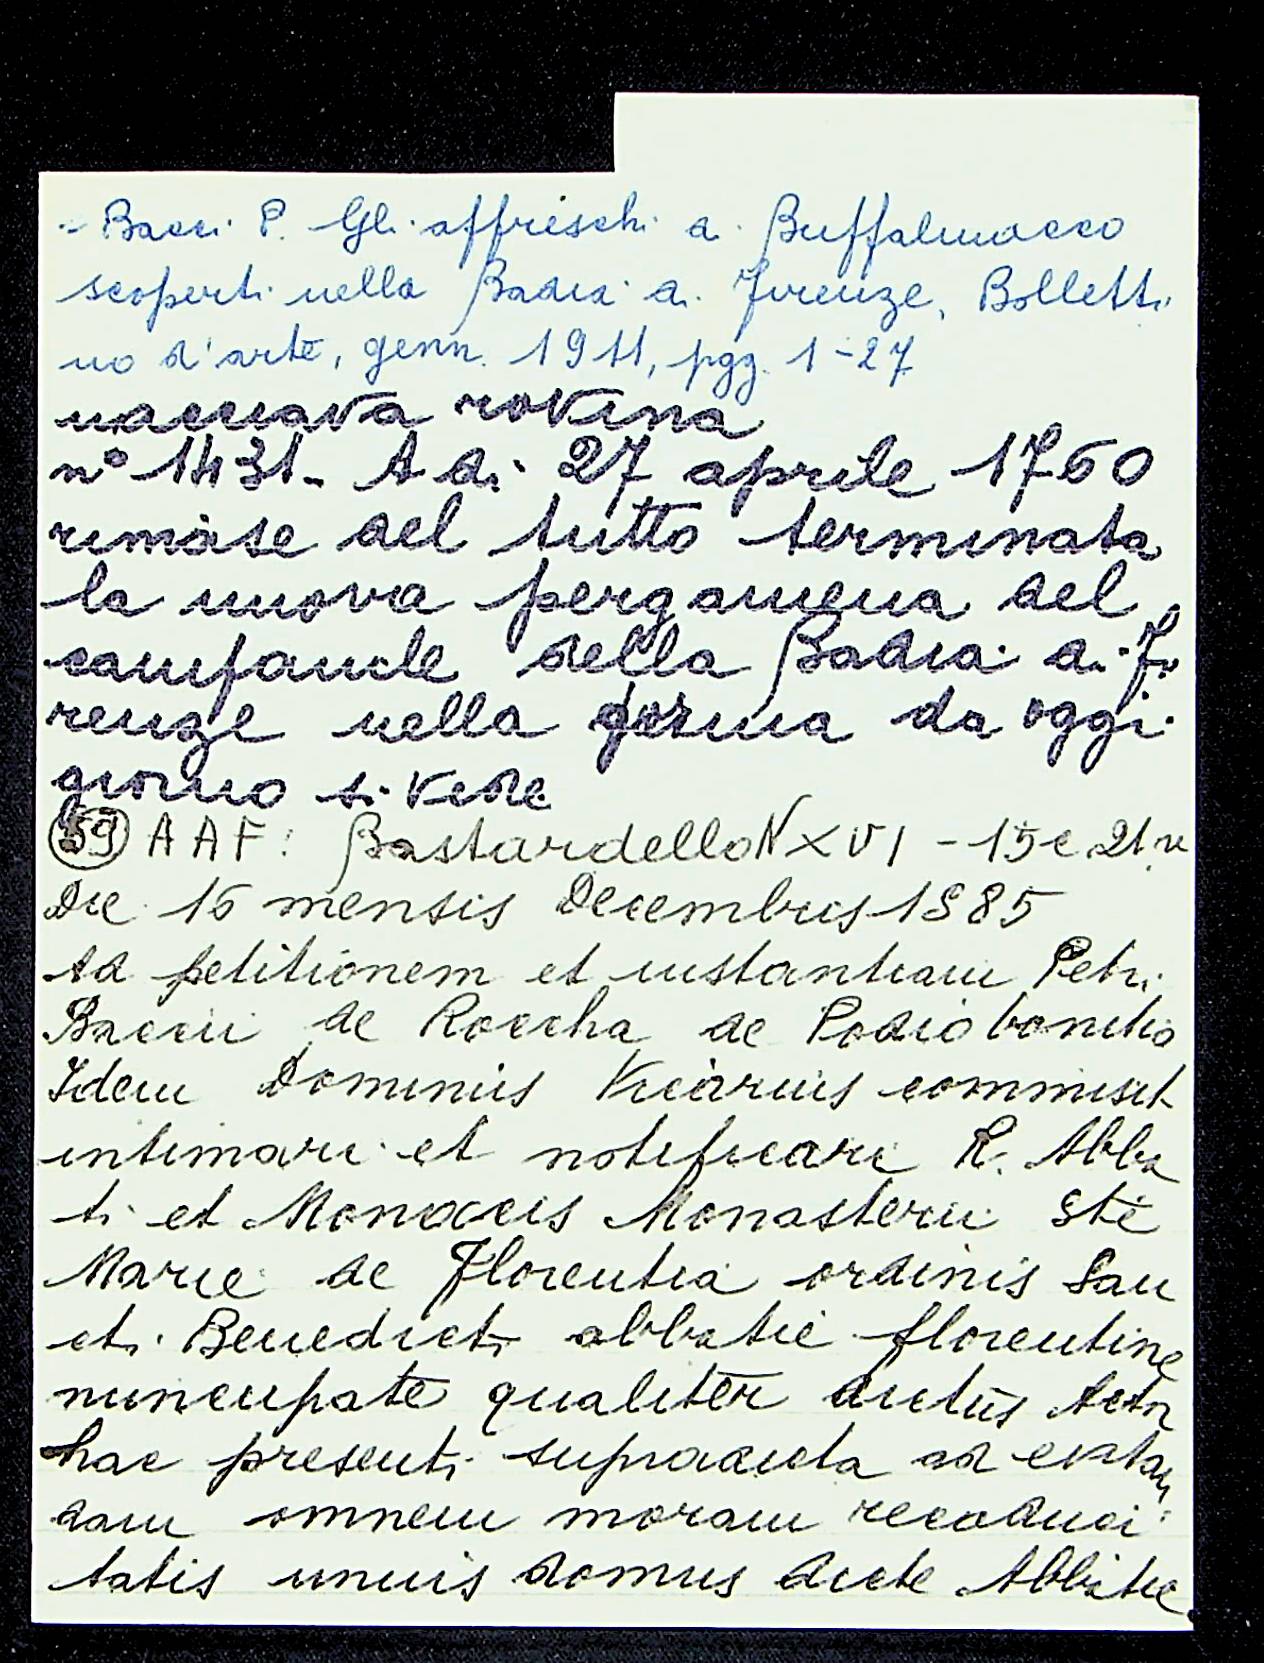 - Bacci P. Gli affreschi di Buffalmacco
scoperti nella Badia di Firenze, Bolletti
no d'arte, genn. 1911, pgg. 1-27
nacciava rovina
n° 1431. A di 27 aprile 1760
rimase del tutto terminata
la nuova pergamena del
campanile della Badia di Fi
renze nella forma da oggi
giorno si vede
59 AAF: Bastardello N XVI - 15 e 21 v
Die 16 mensis Decembris 1585
Ad petitionem et instantiam Petri
Baccii de Roccha de Podio bonitio
Idem Dominus Vicarius commisit
intimari et notificari R. Abba
ti et Monacis Monasterii Ste
Marie de Florentia ordinis San
cti Benedicti abbatie florentine
nuncupate qualiter dictus
hac presenti supradicta ad evitan
dam omnem moram
tatis unius domus dicte Abbatie